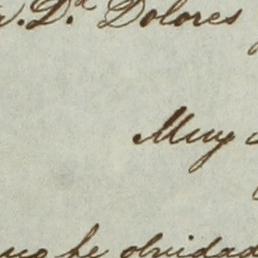 D.ª Dolores
Muy
he olvidad